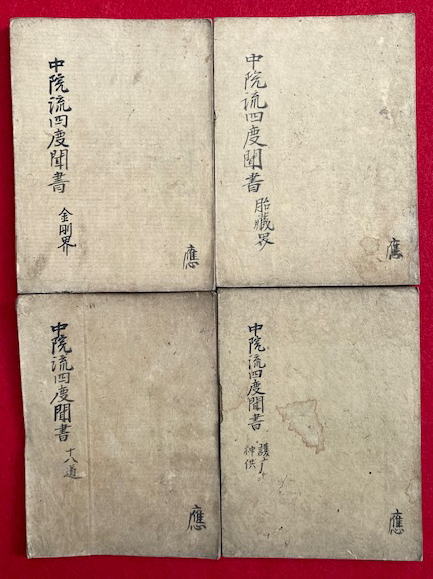 中院流四度聞書 金剛界
應
中院流四度聞書 胎臟界
應
中院流四度聞書 十八道
應
中院流四度聞書
護广
神供
應